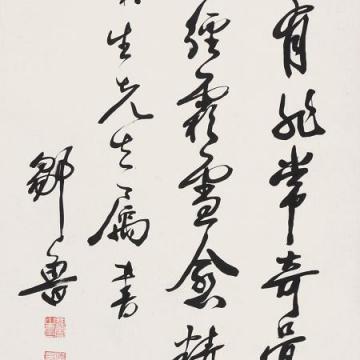 有非常奇
經霜雪愈精
生先生屬書
鄒魯